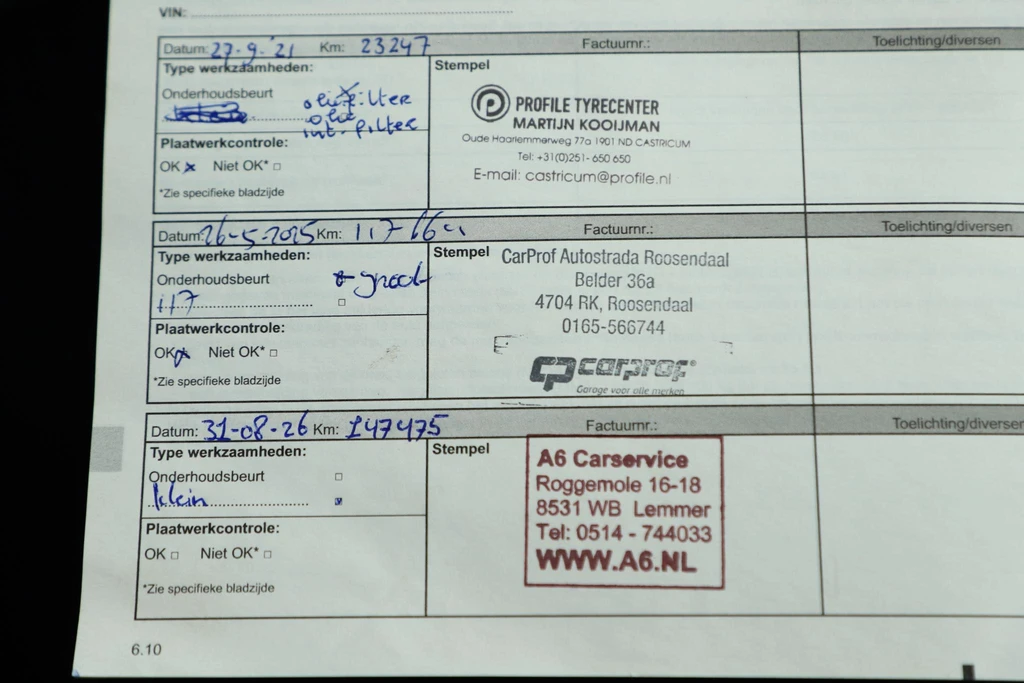 VIN:
Datum: 27-9-'21 Km: 23247 Factuurnr.: Toelichting/diversen
Type werkzaamheden:
Onderhoudsbeurt
oliefilter
olie
int. filter
Plaatwerkcontrole:
OK Niet OK*
*Zie specifieke bladzijde
Stempel
PROFILE TYRECENTER
MARTIJN KOOIJMAN
Oude Haarlemmerweg 77a 1901 ND CASTRICUM
Tel: +31(0)251- 650 650
E-mail: castricum@profile.nl
Datum: 26-5-2025 Km: Factuurnr.: Toelichting/diversen
Type werkzaamheden:
Onderhoudsbeurt groot
117
Plaatwerkcontrole:
OK Niet OK*
*Zie specifieke bladzijde
Stempel
CarProf Autostrada Roosendaal
Belder 36a
4704 RK, Roosendaal
0165-566744
CP carprof
Garage voor alle merken
Datum: 31-08-26 Km: 147475 Factuurnr.: Toelichting/diversen
Type werkzaamheden:
Onderhoudsbeurt
klein
Plaatwerkcontrole:
OK Niet OK*
*Zie specifieke bladzijde
Stempel
A6 Carservice
Roggemole 16-18
8531 WB Lemmer
Tel: 0514 - 744033
WWW.A6.NL
6.10